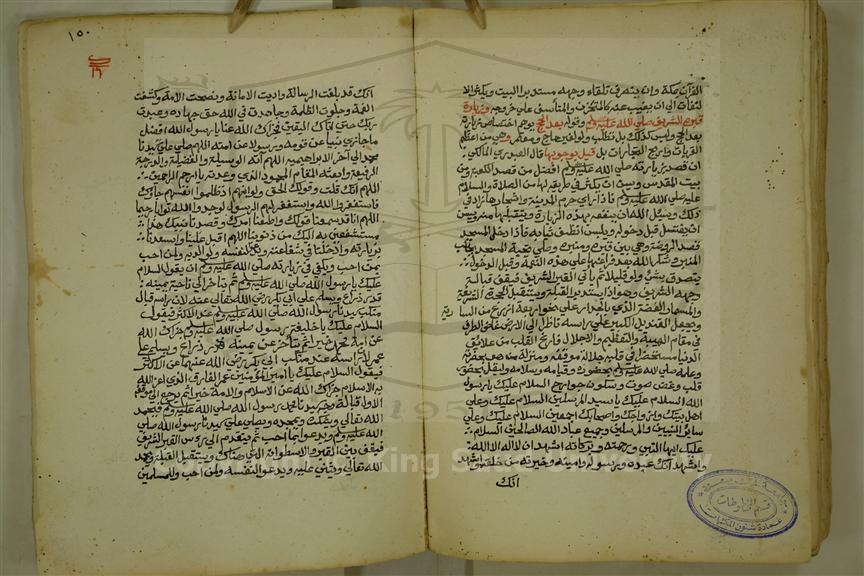 القرآن بمكة وان ينصرف تلقاء وجهه مستدبر البيت ويكثر الا
لتفات الى ان يغيب عنه كالمتحزن والمتاسف على خروجه وزيارة
قبره الشريف صلى الله عليه وسلم وقوله بعد الحج يوهم اختصاص زيارة
بعد الحج وليس كذلك بل تطلب ولو لغير حاج ومعتمر وهي من اعظم
القربات واربح التجارات بل قيل بوجوبها قال العبدري المالكي
ان قصد زيارته صلى الله عليه وسلم افضل من قصد الكعبة ومن
بيت المقدس ويسن ان يكثر في طريقه لها من الصلاة والسلام
عليه صلى الله عليه وسلم فاذا رأى حرم المدينة واشجارها زاد في
ذلك ويسئل الله ان ينفعه بهذه الزيارة ويتقبلها منه ويسن
ان يغتسل قبل دخوله ويلبس انظف ثيابه فاذا دخل المسجد
قصد الروضة وهي بين قبره ومنبره وصلى تحية المسجد بجانب
المنبر وشكر الله بعد فراغها على هذه النعمة وقبل الدخول
يتصدق بشئ ولو قليلا ثم يأتي القبر الشريف فيقف قبالة
وجهه الشريف وهو اذا يستدبر القبلة ويستقبل
والمسمار الفضة الذي بالجدار على نحو اربعة اذرع من السا رية
ويجعل القنديل الكبير على راسه ناظرا الى الارض غاض الطرف
في مقام الهيبة والتعظيم والاجلال فارغ القلب من علائق
الدنيا مستحضرا في قلبه جلالة موقفه ومنزلة من هو بحضرته
وعلمه صلى الله عليه وسلم بحضوره وقيامه وسلامه وليقل بحضور
قلب وغض صوت وسكون جوارح السلام عليك يا رسول
الله السلام عليك يا سيد المرسلين السلام عليك وعلى
اهل بيتك وازواجك واصحابك اجمعين السلام عليك وعلى
سائر النبيين والمرسلين وجميع عباد الله الصالحين السلام
عليك ايها النبي ورحمة الله وبركاته اشهد ان لا اله الا الله
واشهد انك عبده ورسوله وامينه وخيرته من خلقه واشهد
انك
١٥٠
انك قد بلغت الرسالة واديت الامانة ونصحت الامة وكشفت
الغمة وجلوت الظلمة وجاهدت في الله حق جهاده وعبدت
ربك حتى اتاك اليقين فجزاك الله عنا يا رسول الله افضل
ما جازى نبيا عن قومه ورسولا عن امته اللهم صل على سيدنا
محمد الى آخر الابراهيمية اللهم آته الوسيلة والفضيلة والدرجة
الرفيعة وابعثه المقام المحمود الذي وعدته يا ارحم الراحمين
اللهم انك قلت وقولك الحق ولو انهم اذ ظلموا انفسهم جاؤك
فاستغفروا الله واستغفر لهم الرسول لوجدوا الله توابا رحيما
اللهم انا قد سمعنا قولك واطعنا امرك وقصدنا نبيك هذا
مستشفعين به اليك من ذنوبنا اللهم اقبل علينا واسعدنا
بزيارته وادخلنا في شفاعته ويدعو لنفسه ولوالديه ولمن احب
بمن احب ويكفي في زيارته صلى الله عليه وسلم ان يقول السلام
عليك يا رسول الله صلى الله عليه وسلم ثم يتأخر الى ناحية يمينه
قدر ذراع ويسلم على ابي بكر رضي الله تعالى عنه لان راسه قبال
منكب سيدنا رسول الله صلى الله عليه وسلم عند الاكثر فيقول
السلام عليك يا خليفة رسول صلى الله عليه وسلم جزاك الله
عن امة محمد خيرا ثم يتأخر عن يمينه قدر ذراع ويسلم على
عمر لان راسه عند منكب ابي بكر رضي الله عنهما عن الاكثر
فيقول السلام عليك يا امير المؤمنين عمر الفاروق الذي اعز الله
به الاسلام جزاك الله عن الاسلام والامة خيرا ثم يرجع الى موقفه
الاول قبالة وجه سيدنا محمد رسول الله صلى الله عليه وسلم فيحمد
الله تعالى ويشكره ويمجده ويصلي على سيدنا رسول الله صلى
الله عليه وسلم ويدعو بما احب ثم يتقدم الى رؤس القبر الشريف
فيقف بين القبر والاسطوان الذي هناك ويستقبل القبلة ويحمد
الله تعالى ويثني عليه ويدعو لنفسه ولمن احب وللمسلمين
قسم المخطوطات
عمادة شئون المكتبات
King Saud University